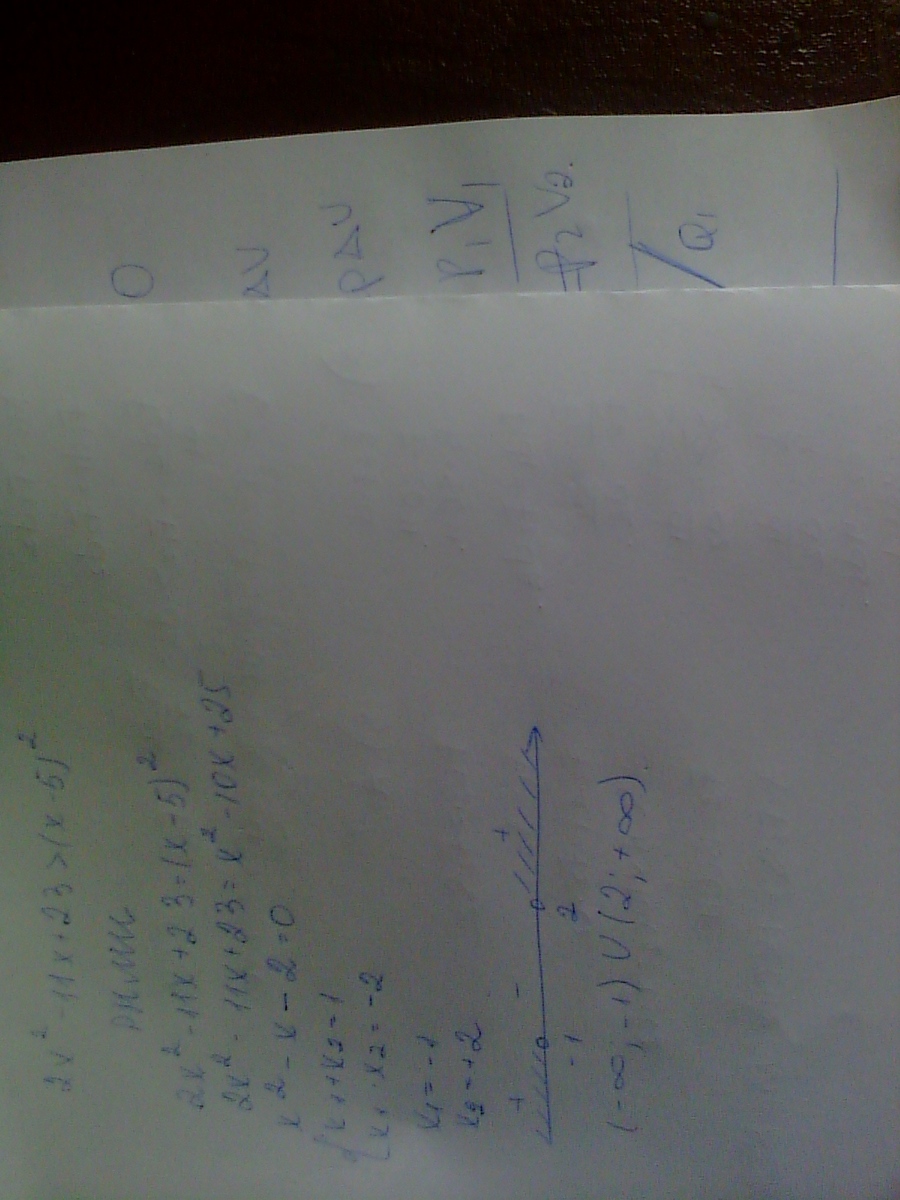 2x² - 11x + 23 > (x - 5)²
ммил
2x² - 11x + 23 = (x - 5)²
2x² - 11x + 23 = x² - 10x + 25
x² - x - 2 = 0
{ x₁ + x₂ = 1
x₁ · x₂ = -2
x₁ = -1
x₂ = +2
+ - +
-1 2
(-∞; -1) ∪ (2; +∞).
0
ΔU
pΔU
p₁V₁
p₂V₂.
Q₁